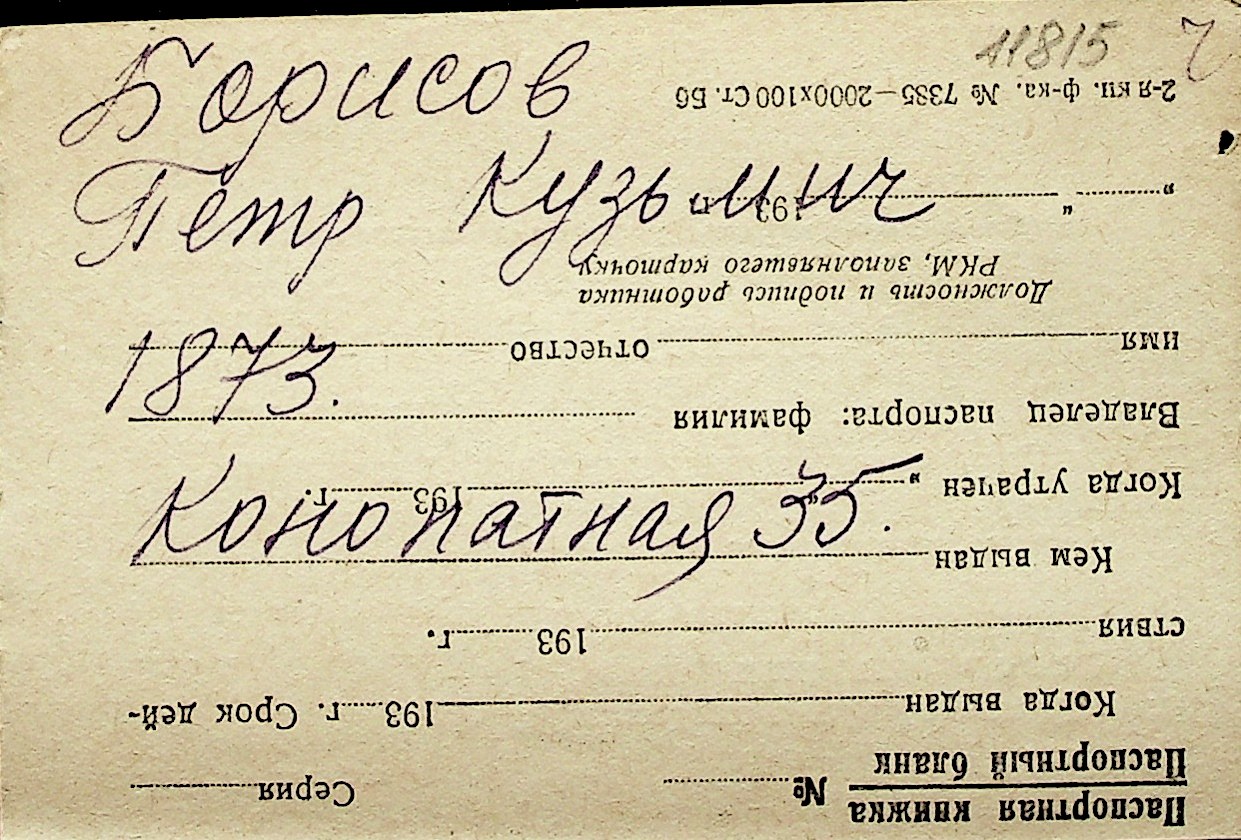 11815 Ч
Борисов
Пётр Кузьмич
1873.
Конопатная 35.
Паспортная книжка
Паспортный бланк
№ Серия
Когда выдан 193 г. Срок дей-
ствия 193 г.
Кем выдан
Когда утрачен " " 193 г.
Владелец паспорта: фамилия
имя отчество
Должность и подпись работника
РКМ, заполнявшего карточку
" " 193 г.
2-я кн. ф-ка. № 7335—2000х100 Ст. Бб